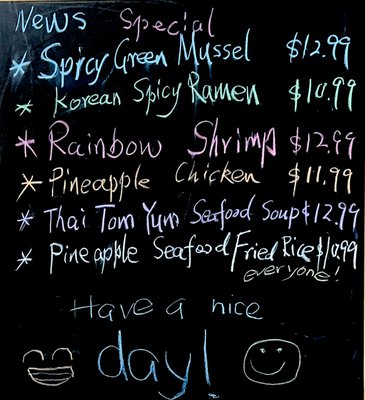 News Special
* Spicy Green Mussel $12.99
* Korean Spicy Ramen $10.99
* Rainbow Shrimp $12.99
* Pineapple Chicken $11.99
* Thai Tom Yum Seafood Soup $12.99
* Pineapple Seafood Fried Rice $10.99
everyone!
Have a nice
day!